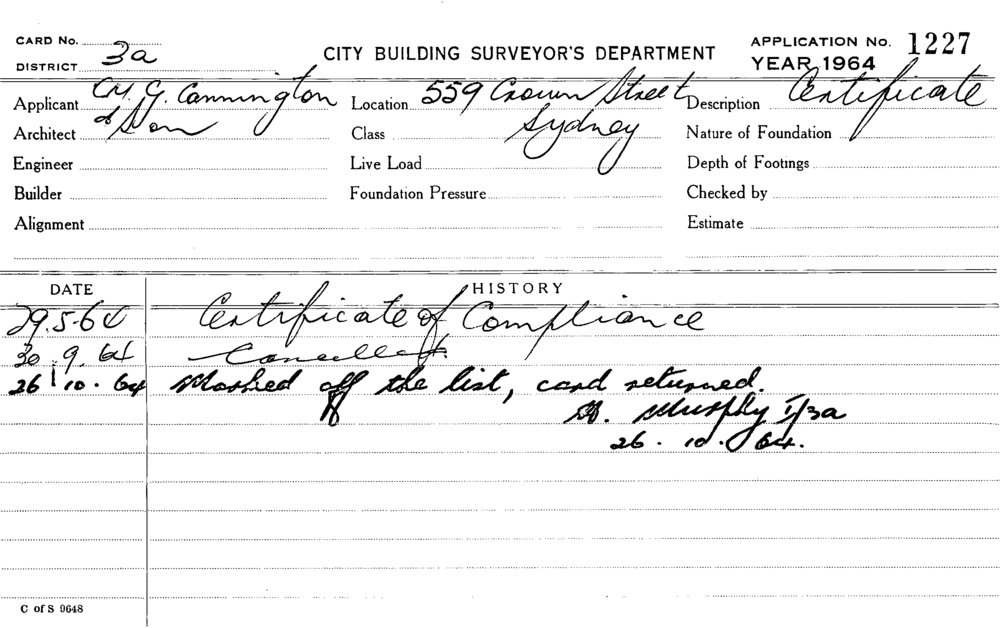 CARD No. CITY BUILDING SURVEYOR'S DEPARTMENT APPLICATION No. 1227
DISTRICT 3a YEAR 1964
Applicant G. Cannington Location 559 Crown Street Description Certificate
Architect & Son Class Sydney Nature of Foundation
Engineer Live Load Depth of Footings
Builder Foundation Pressure Checked by
Alignment Estimate
DATE HISTORY
29.5.64 Certificate of Compliance
30.9.64 Cancelled.
26.10.64 Marked off the list, card returned.
Murphy I/3a
26.10.64.
C of S 9648